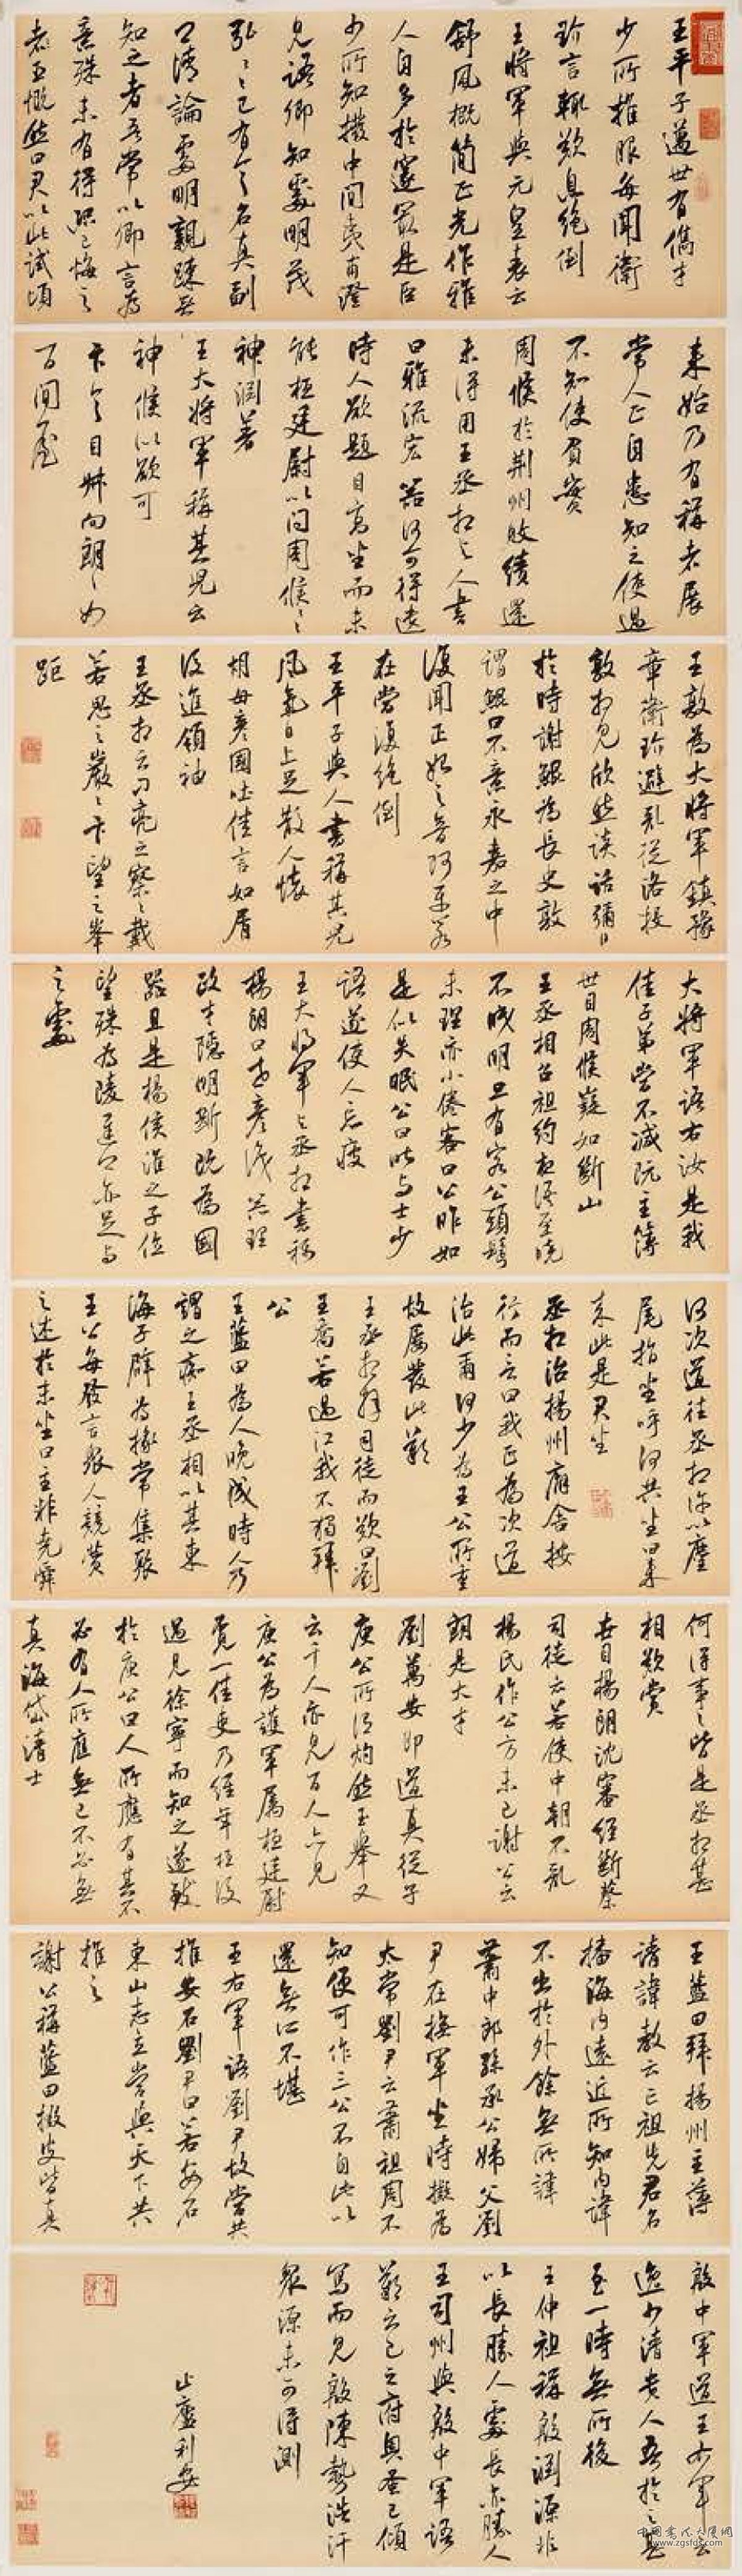 王平子邁世有儁才
少所推服每聞衛
玠言輒歎息絕倒
王將軍與元皇表云
舒風概簡正允作雅
人自多於邃最是臣
少所知拔中間夷甫澄
見語卿知處明茂
弘茂弘已有令名真副
卿清論處明親疎無
知之者吾常以卿言為
意殊未有得恐已悔之
臣慨然曰君以此試頃
來始乃有稱者展
常人正自患知之使過
不知使負實
周侯於荊州敗績還
未得用王丞相與人書
曰雅流宏器何可得遺
時人欲題目高坐而未
能桓廷尉以問周侯周侯
神淵箸
王大將軍稱其兒云
神候似欲可
卞令目叔向朗朗如
百間屋
王敦為大將軍鎮豫
章衛玠避亂從洛投
敦相見欣然談話彌日
於時謝鯤為長史敦
謂鯤曰不意永嘉之中
復聞正始之音阿平若
在當復絕倒
王平子與人書稱其兒
風氣日上足散人懷
胡毋彥國吐佳言如屑
後進領袖
王丞相云刁玄亮之察察戴
若思之巖巖卞望之峯
距
大將軍語右軍汝是我
佳子弟當不減阮主簿
世目周侯嶷如斷山
王丞相召祖約夜語至曉
不眠明旦有客公頭鬢
未理亦小倦客曰公昨如
是似失眠公曰昨與士少
語遂使人忘疲
王大將軍與丞相書稱
楊朗曰世彥識器理
致才隱明斷既為國
器且是楊侯淮之子位
望殊為陵遲卿亦足與
之處
何次道往丞相許以麈
尾指坐呼何共坐曰來
來此是君坐
丞相治揚州廨舍按
行而言曰我正為次道
治此爾何少為王公所重
故屢發此歎
王丞相拜司徒而歎曰劉
王喬若過江我不獨拜
公
王藍田為人晚成時人乃
謂之癡王丞相以其東
海子辟為掾常集聚
王公每發言眾人競贊
之述於末坐曰主非堯舜
何得事事皆是丞相甚
相歎賞
世目楊朗沈審經斷蔡
司徒云若使中朝不亂
楊氏作公方未已謝公云
朗是大才
劉萬安即道真從子
庾公所謂灼然玉舉又
云千人亦見百人亦見
庾公為護軍屬桓廷尉
覓一佳吏乃經年桓後
遇見徐寧而知之遂致
於庾公曰人所應有其不
必有人所應無己不必無
真海岱清士
王藍田拜揚州主簿
請諱教云亡祖先君名
播海內遠近所知內諱
不出於外餘無所諱
蕭中郎孫承公婦父劉
尹在撫軍坐時擬為
太常劉尹云蕭祖周不
知便可作三公不自此以
還無所不堪
王右軍語劉尹故當共
推安石劉尹曰若安石
東山志立當與天下共
推之
謝公稱藍田掇皮皆真
殷中軍道王右軍云
逸少清貴人吾於之甚
至一時無所後
王仲祖稱殷淵源非
以長勝人處長亦勝人
王司州與殷中軍語
歎云己之府奧蚤已傾
寫而見殷陳勢浩汗
眾源未可得測
中国书法大展网
www.zgsfds.com